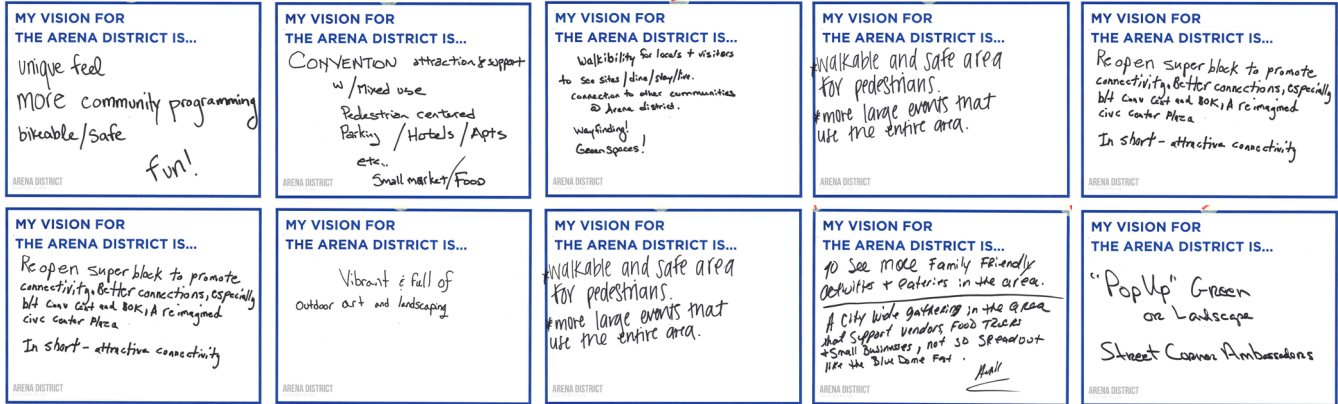 MY VISION FOR
THE ARENA DISTRICT IS...
unique feel
more community programming
bikeable/safe
fun!
ARENA DISTRICT
MY VISION FOR
THE ARENA DISTRICT IS...
CONVENTION attraction & support
w/Mixed use
Pedestrian centered
Parking /Hotels/Apts
etc..
Small market/Food
MY VISION FOR
THE ARENA DISTRICT IS...
Walkibility for locals + visitors
to see sites/dine/stay/live.
connection to other communities
@ Arena district.
Wayfinding!
Green spaces!
ARENA DISTRICT
MY VISION FOR
THE ARENA DISTRICT IS...
*walkable and safe area
for pedestrians.
*more large events that
use the entire area.
ARENA DISTRICT
MY VISION FOR
THE ARENA DISTRICT IS...
Reopen super block to promote
connectivity. Better connections, especially
b/t Conv Cent and BOK, A reimagined
civic center Plaza
In short - attractive connectivity
ARENA DISTRICT
MY VISION FOR
THE ARENA DISTRICT IS...
Reopen super block to promote
connectivity. Better connections, especially
b/t Conv Cent and BOK, A reimagined
civic center Plaza
In short - attractive connectivity
ARENA DISTRICT
MY VISION FOR
THE ARENA DISTRICT IS...
Vibrant & full of
outdoor art and landscaping
ARENA DISTRICT
MY VISION FOR
THE ARENA DISTRICT IS...
*walkable and safe area
for pedestrians.
*more large events that
use the entire area.
ARENA DISTRICT
MY VISION FOR
THE ARENA DISTRICT IS...
to See more Family FRiendly
activities + eateries in the area.
A City wide gathering in the area
that support vendors, FOOD TRucks
+ Small Businesses, not so spreadout
like the Blue Dome Fest.
ARENA DISTRICT
MY VISION FOR
THE ARENA DISTRICT IS...
"Pop Up" Green
or Landscape
Street Corner Ambassadors
ARENA DISTRICT